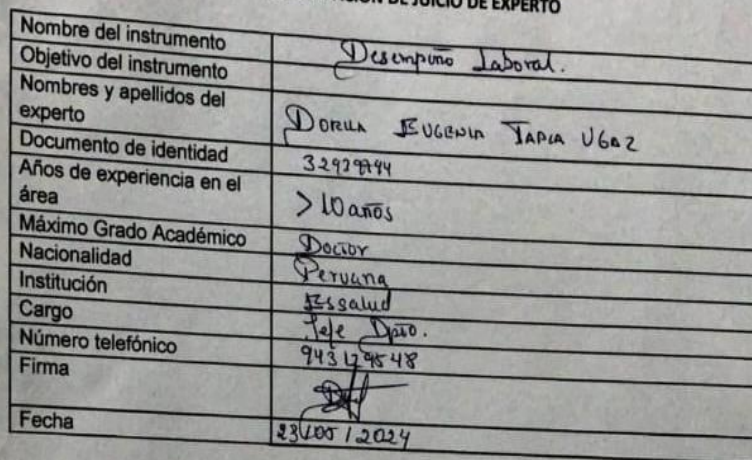 DE JUICIO DE EXPERTO
Nombre del instrumento Desempeño Laboral.
Objetivo del instrumento
Nombres y apellidos del
experto DORILA EUGENIA TAPIA UGAZ
Documento de identidad
Años de experiencia en el
área >10 años
Máximo Grado Académico Doctor
Nacionalidad Peruana
Institución Essalud
Cargo Jefe Dpto.
Número telefónico
Firma
Fecha 23/05/2024